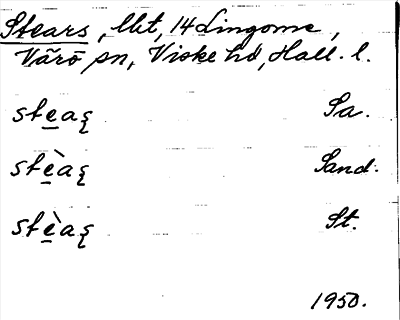 Stears, llkt, 14 Lingome,
Värö sn, Viske hd, Hall. l.
steaʂ Sa.
stèaʂ Sand.
stèaʂ St.
1950.